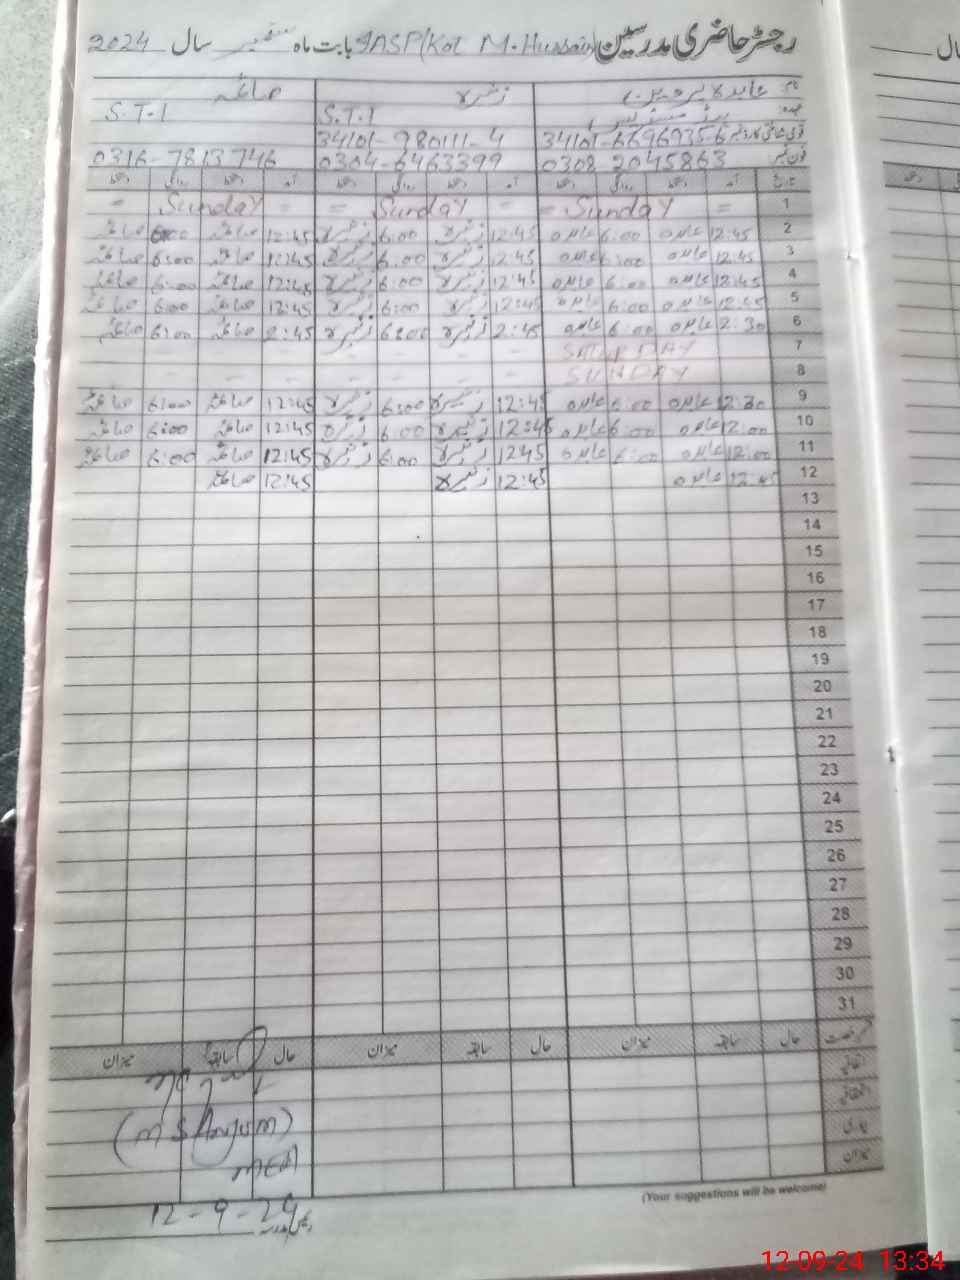 رجسٹر حاضری مدرسین IASP(Kot M.Hussain) بابت ماہ ستمبر سال 2024
نام عابدہ پروین زنیرہ صائمہ
عہدہ S.T.I S.T.I
قومی شناختی کارڈ نمبر 34101-6696935-6 34101-980111-4
فون نمبر 0308 2045863 0304-6463399 0316-7813746
تاریخ آمد دستخط روانگی دستخط آمد دستخط روانگی دستخط آمد دستخط روانگی دستخط
1 = Sunday = = Sunday = = Sunday =
2 12:45 عابدہ 6:00 عابدہ 12:45 زنیرہ 6:00 زنیرہ 12:45 صائمہ 6:00 صائمہ
3 12:45 عابدہ 6:00 عابدہ 12:45 زنیرہ 6:00 زنیرہ 12:45 صائمہ 6:00 صائمہ
4 12:45 عابدہ 6:00 عابدہ 12:45 زنیرہ 6:00 زنیرہ 12:45 صائمہ 6:00 صائمہ
5 12:45 عابدہ 6:00 عابدہ 12:45 زنیرہ 6:00 زنیرہ 12:45 صائمہ 6:00 صائمہ
6 2:30 عابدہ 6:00 عابدہ 2:45 زنیرہ 6:00 زنیرہ 2:45 صائمہ 6:00 صائمہ
7 SATURDAY - - - - - - - -
8 SUNDAY - - - - - - - -
9 12:30 عابدہ 6:00 عابدہ 12:45 زنیرہ 6:00 زنیرہ 12:45 صائمہ 6:00 صائمہ
10 12:00 عابدہ 6:00 عابدہ 12:45 زنیرہ 6:00 زنیرہ 12:45 صائمہ 6:00 صائمہ
11 12:00 عابدہ 6:00 عابدہ 12:45 زنیرہ 6:00 زنیرہ 12:45 صائمہ 6:00 صائمہ
12 12:45 عابدہ 12:45 زنیرہ 12:45 صائمہ
13
14
15
16
17
18
19
20
21
22
23
24
25
26
27
28
29
30
31
رخصت حال سابقہ میزان حال سابقہ میزان حال سابقہ میزان
اتفاقیہ
بیماری
میزان
(M S Anjum)
MEA
12-9-24
(Your suggestions will be welcome)
سال
1
12-09-24 13:34